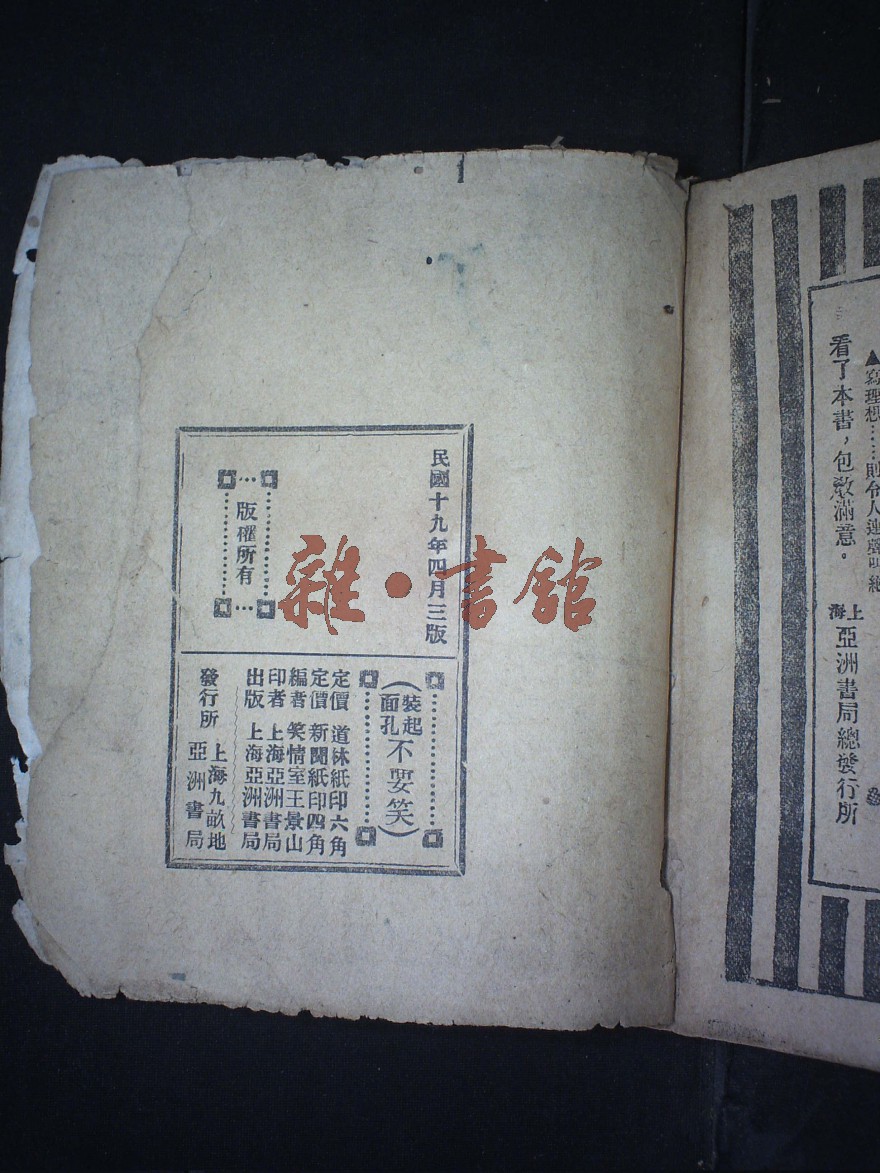 ▲寫理想……則令人連聲叫絕
看了本書，包教滿意。
上海 亞洲書局總發行所
民國十九年四月三版
版權所有
(裝起面孔不要笑)
定價 道林紙印六角
定價 新聞紙印四角
編者 笑情室王景山
印者 上海亞洲書局
出版 上海亞洲書局
發行所 上海九畝地
亞洲書局
雜·書館